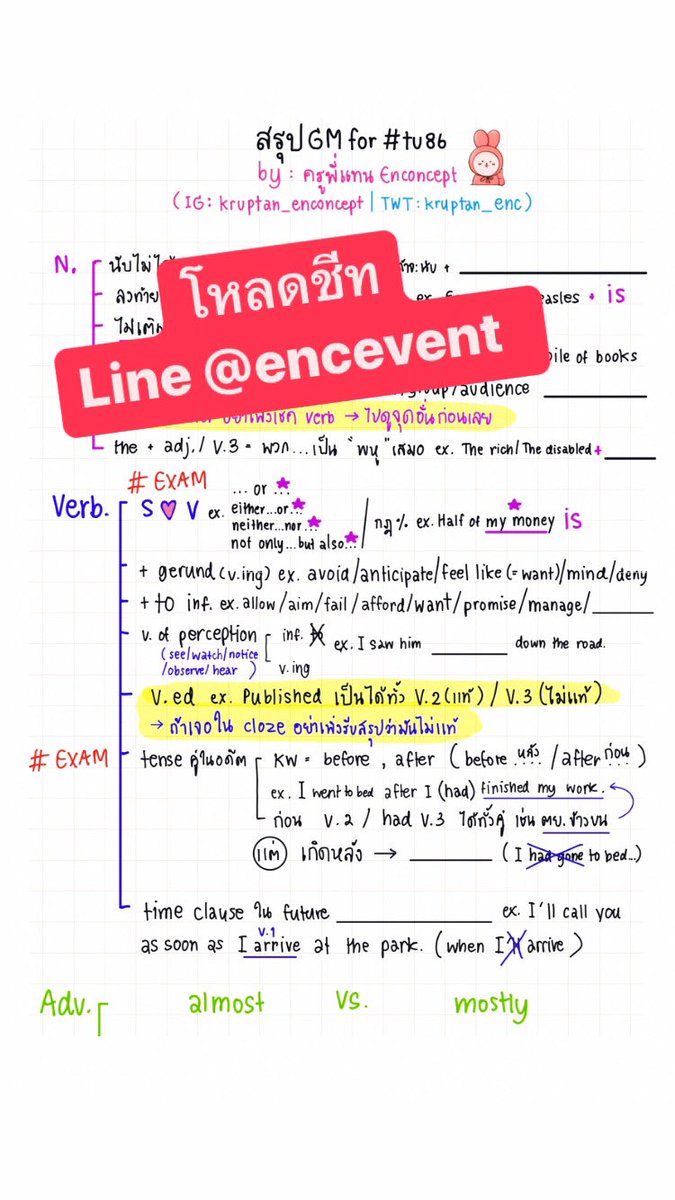 สรุป GM for #tu86
by : ครูพี่แทน Enconcept
(IG: kruptan_enconcept | TWT: kruptan_enc)
โหลดชีท
Line @encevent
N. นับไม่ได้ + ______
ลงท้าย ex. easles + is
ไม่เติม pile of books
group/audience ______
อย่าเพิ่งเช็ค verb → ไปดูจุดอื่นก่อนเลย
the + adj./ V.3 = พวก...เป็น "พหู" เสมอ ex. The rich/The disabled + ______
# EXAM
Verb. S ♥ V ex. ... or ...★
either...or...★
neither...nor...★
not only...but also...★
/ กฎ % ex. Half of my money is
+ gerund (v.ing) ex. avoid/anticipate/feel like (= want)/mind/deny
+ to inf. ex. allow/aim/fail/afford/want/promise/manage/______
v. of perception inf. to ex. I saw him ______ down the road.
(see/watch/notice
/observe/hear) v.ing
V.ed ex. Published เป็นได้ทั้ง V.2 (แท้) / V.3 (ไม่แท้)
→ ถ้าเจอใน cloze อย่าเพิ่งรีบสรุปว่ามันไม่แท้
# EXAM tense คู่ในอดีต KW = before , after (before ...หลัง / after ก่อน...)
ex. I went to bed after I (had) finished my work.
ก่อน V.2 / had V.3 ได้ทั้งคู่ เช่น ตย. ข้างบน
แต่ เกิดหลัง → ______ (I had gone to bed...)
time clause ใน future ______ ex. I'll call you
v.1
as soon as I arrive at the park. (when I'll arrive)
Adv. almost vs. mostly